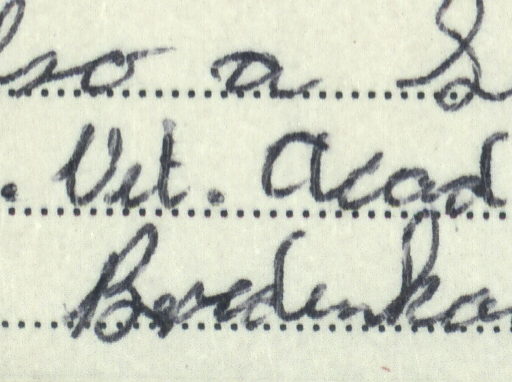 lso a
. Vit. Acad
Bredenka